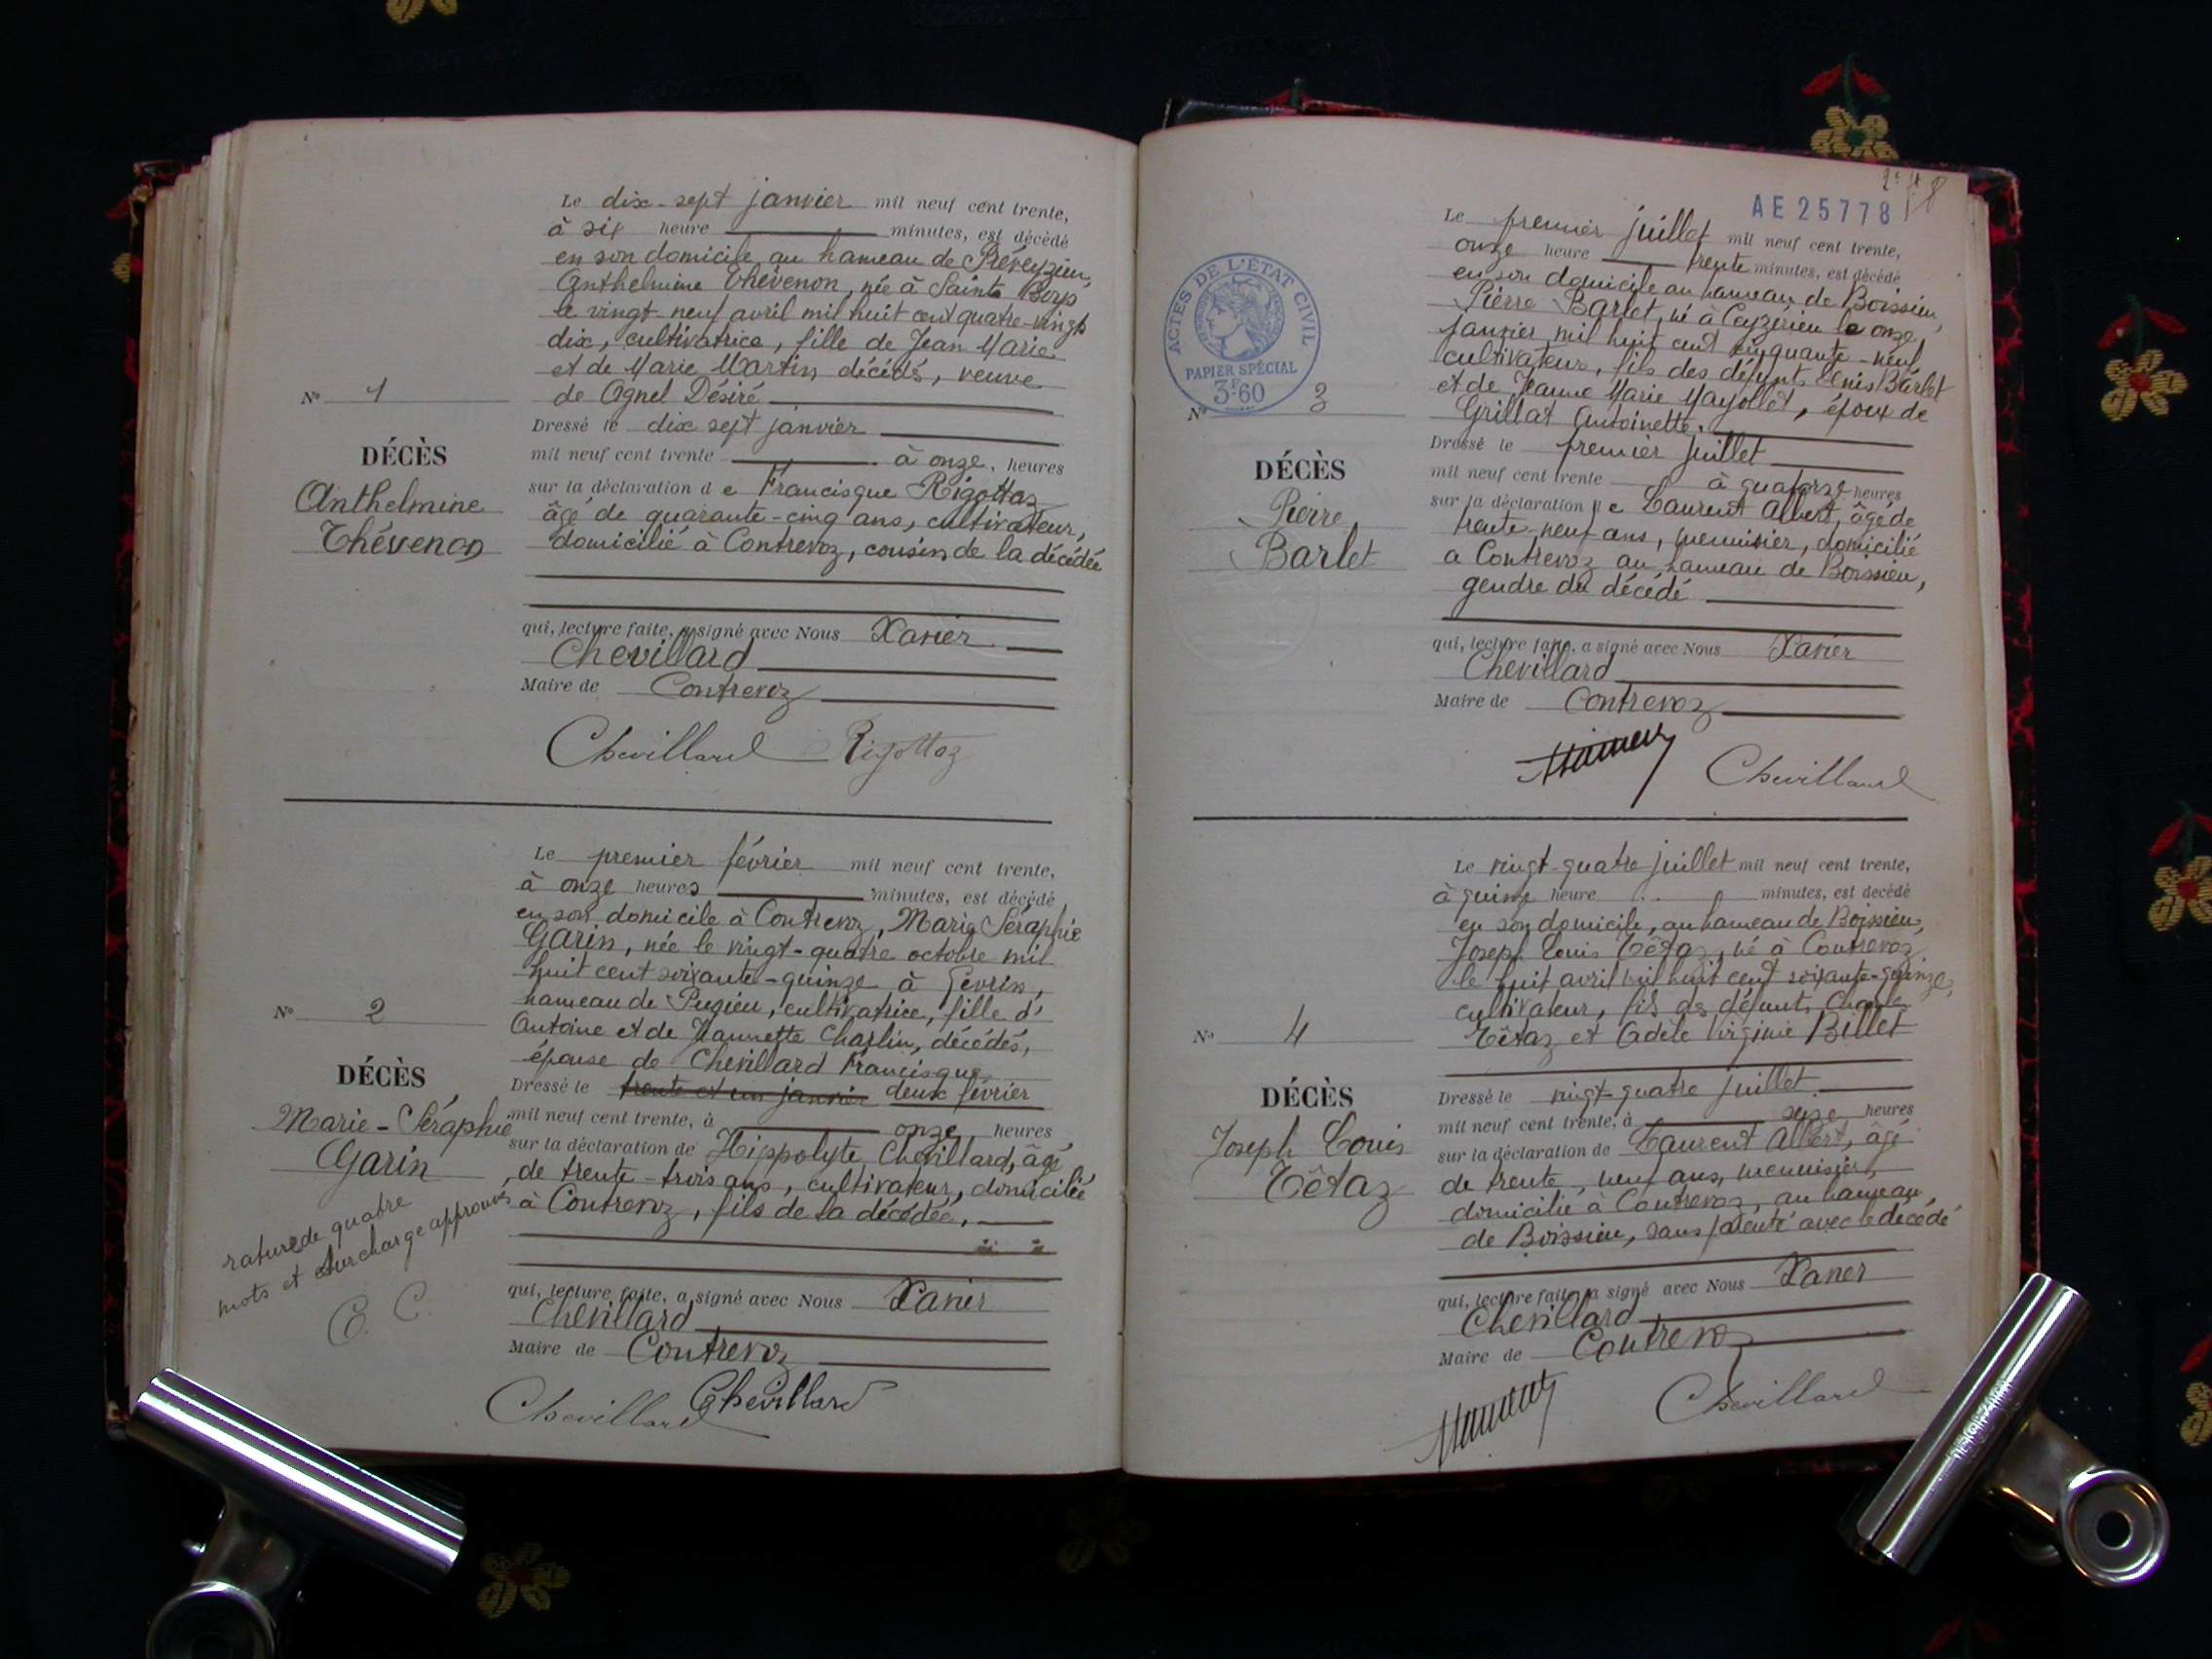 Le dix-sept janvier mil neuf cent trente,
à six heure minutes, est décédé
en son domicile au hameau de Préveyzieu,
Anthelmine Thévenon, née à Saint Boys
le vingt-neuf avril mil huit cent quatre-vingt
dix, cultivatrice, fille de Jean Marie
et de Marie Martin décédés, veuve
de Ognel Désiré
N° 1
DÉCÈS
Anthelmine
Thévenon
Dressé le dix sept janvier
mil neuf cent trente à onze, heures
sur la déclaration de Francisque Rigottaz
âgé de quarante-cinq ans, cultivateur,
domicilié à Contrevoz, cousin de la décédée
qui, lecture faite, a signé avec Nous Xavier
Chevillard
Maire de Contrevoz
Chevillard Rigottaz
Le premier février mil neuf cent trente,
à onze heures minutes, est décédé
en son domicile à Contrevoz, Marie Séraphie
Garin, née le vingt-quatre octobre mil
huit cent soixante-quinze à Gevrin,
hameau de Pugieu, cultivatrice, fille d'
Antoine et de Jeannette Charlin, décédés,
épouse de Chevillard Francisque
N° 2
DÉCÈS
Marie-Séraphie
Garin
rature de quatre
mots et surcharge approuvés
C. C.
Dressé le trente et un janvier deux février
mil neuf cent trente, à onze heures
sur la déclaration de Hippolyte Chevillard, âgé
de trente-trois ans, cultivateur, domicilié
à Contrevoz, fils de la décédée,
qui, lecture faite, a signé avec Nous Xavier
Chevillard
Maire de Contrevoz
Chevillard Chevillard
AE25778
Le premier juillet mil neuf cent trente,
onze heure trente minutes, est décédé
en son domicile au hameau de Boissieu,
Pierre Barlet, né à Ceyzérieu le onze
janvier mil huit cent cinquante-neuf,
cultivateur, fils des défunts Denis Barlet
et de Jeanne Marie Mayollet, époux de
Grillat Antoinette.
ACTES DE L'ÉTAT CIVIL
PAPIER SPÉCIAL
3F60
N° 3
DÉCÈS
Pierre
Barlet
Dressé le premier juillet
mil neuf cent trente à quatorze heures
sur la déclaration de Laurent Albert, âgé de
trente-neuf ans, menuisier, domicilié
a Contrevoz au hameau de Boissieu,
gendre du décédé
qui, lecture faite, a signé avec Nous Xavier
Chevillard
Maire de Contrevoz
Chevillard
Le vingt-quatre juillet mil neuf cent trente,
à quinze heure minutes, est décédé
en son domicile, au hameau de Boissieu,
Joseph Louis Têtaz, né à Contrevoz
le huit avril mil huit cent soixante-quinze,
cultivateur, fils des défunts Charles
Têtaz et Adèle Virginie Billet
N° 4
DÉCÈS
Joseph Louis
Têtaz
Dressé le vingt-quatre juillet
mil neuf cent trente, à seize heures
sur la déclaration de Laurent Albert, âgé
de trente-neuf ans, menuisier,
domicilié à Contrevoz, au hameau
de Boissieu, sans parenté avec le décédé
qui, lecture faite, a signé avec Nous Xavier
Chevillard
Maire de Contrevoz
Chevillard